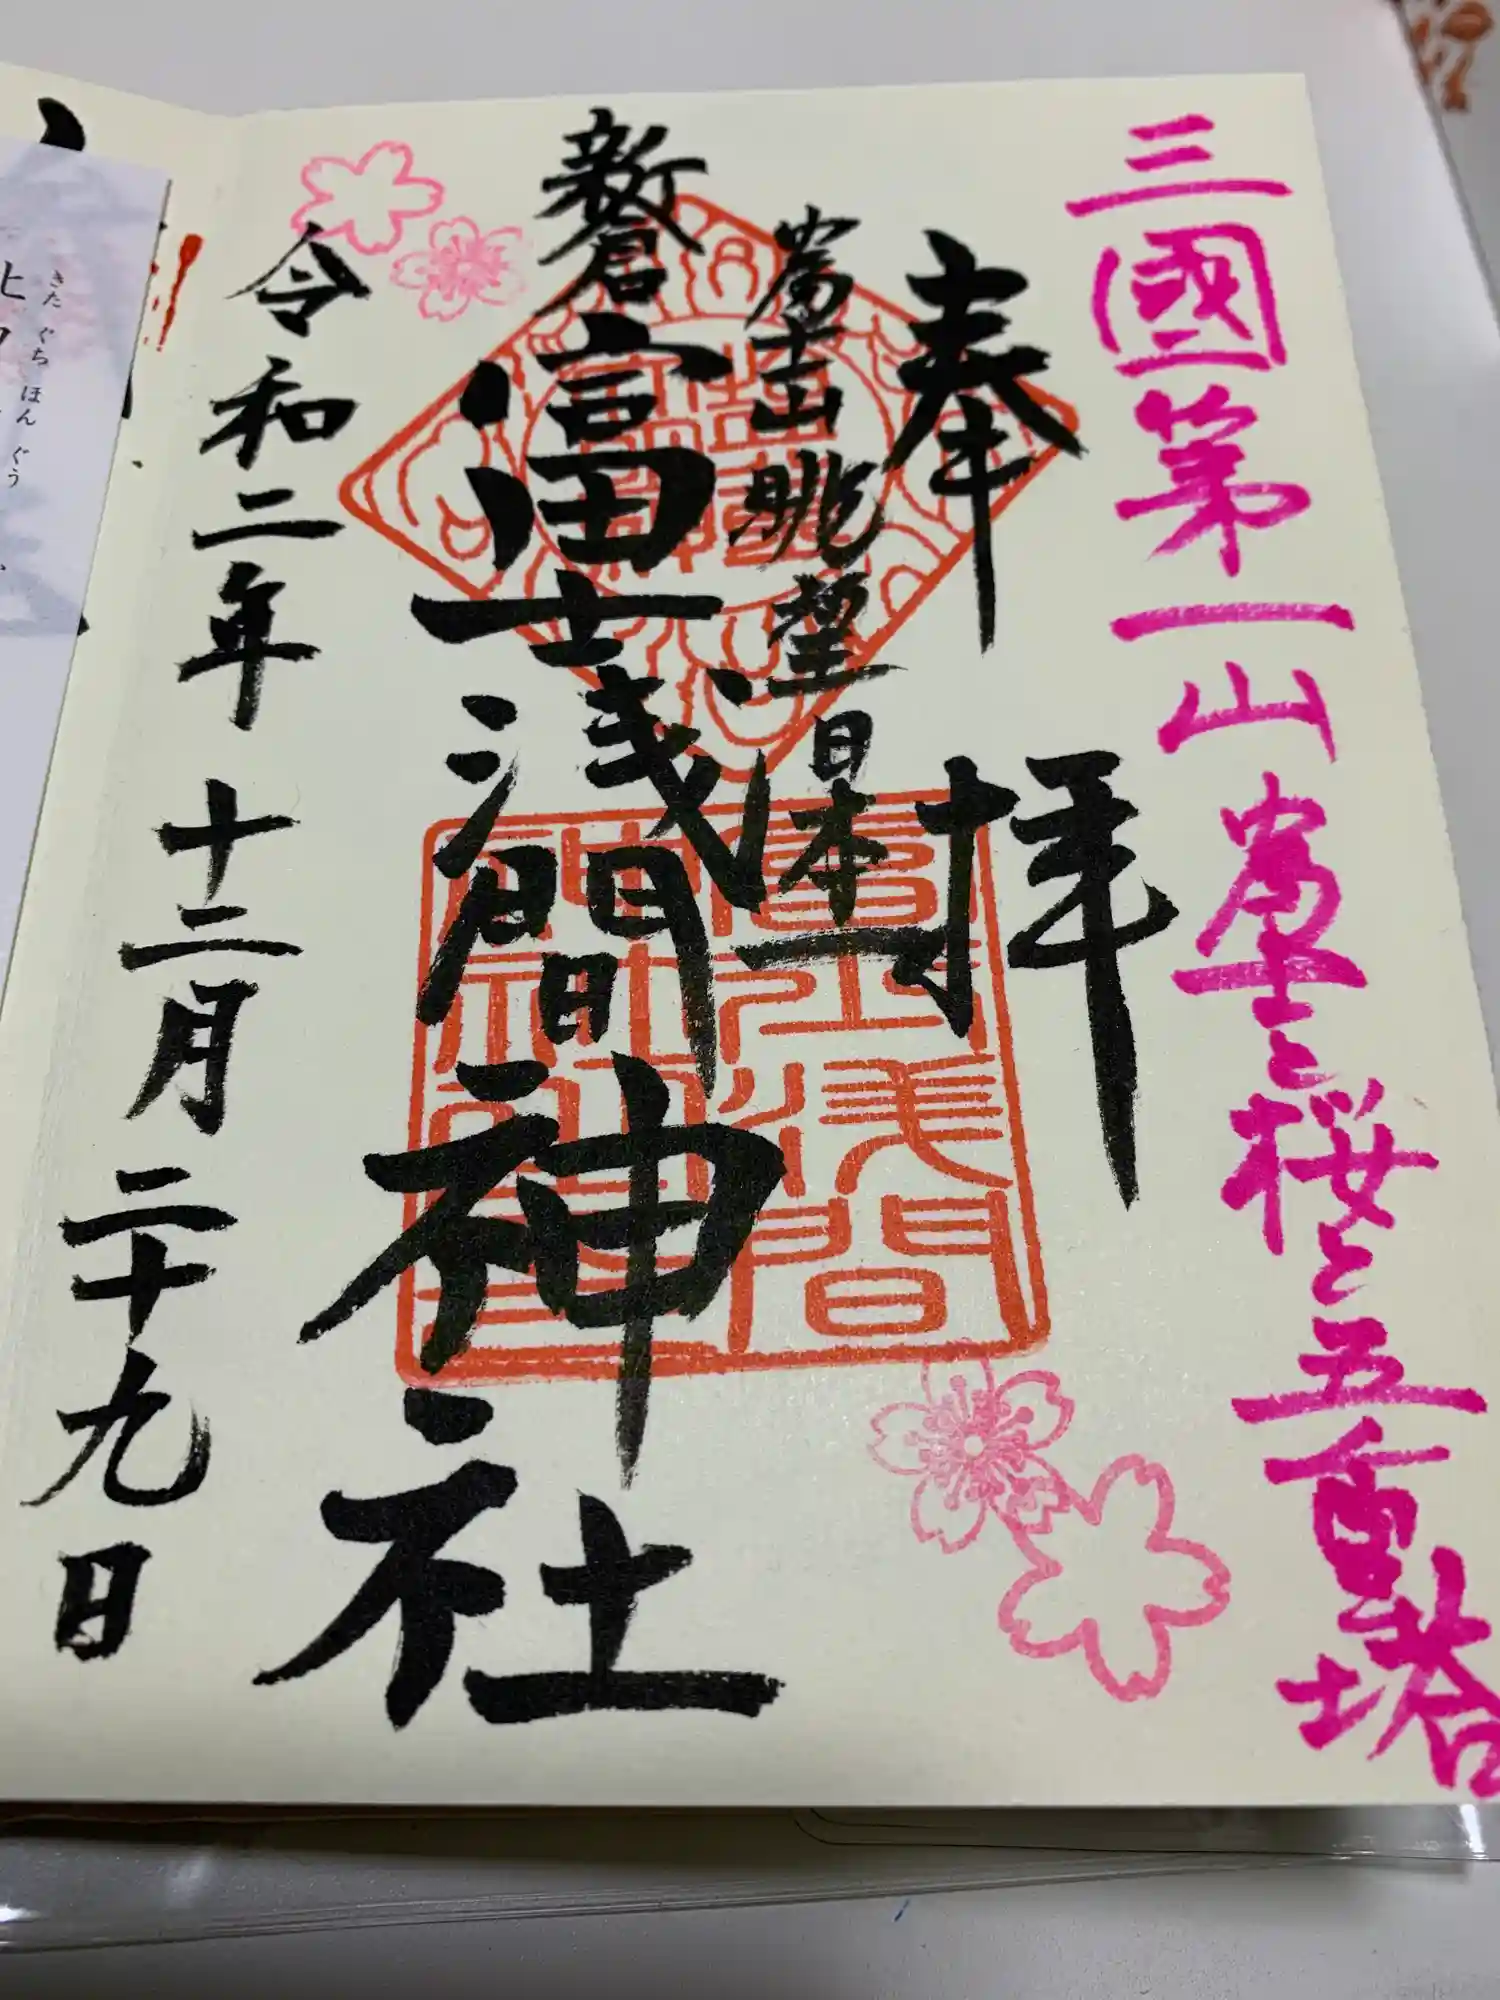 三國第一山富士と桜と五重塔
奉拝
富士山眺望日本一
新倉富士浅間神社
令和二年 十二月 二十九日
富士浅間
きたぐちほんぐう